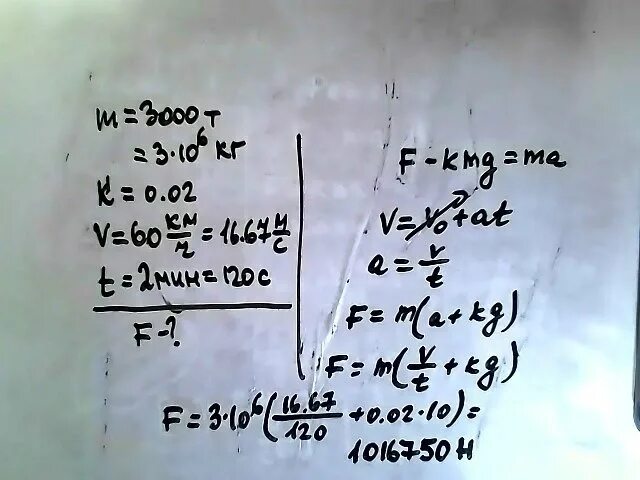 m = 3000 т
= 3·10⁶ кг
K = 0.02
V = 60 км/ч = 16.67 м/с
t = 2 мин = 120 с
F - ?
F - kmg = ma
V = V₀ + at
a = v/t
F = m(a + kg)
F = m(v/t + kg)
F = 3·10⁶(16.67/120 + 0.02·10) =
1016750 Н